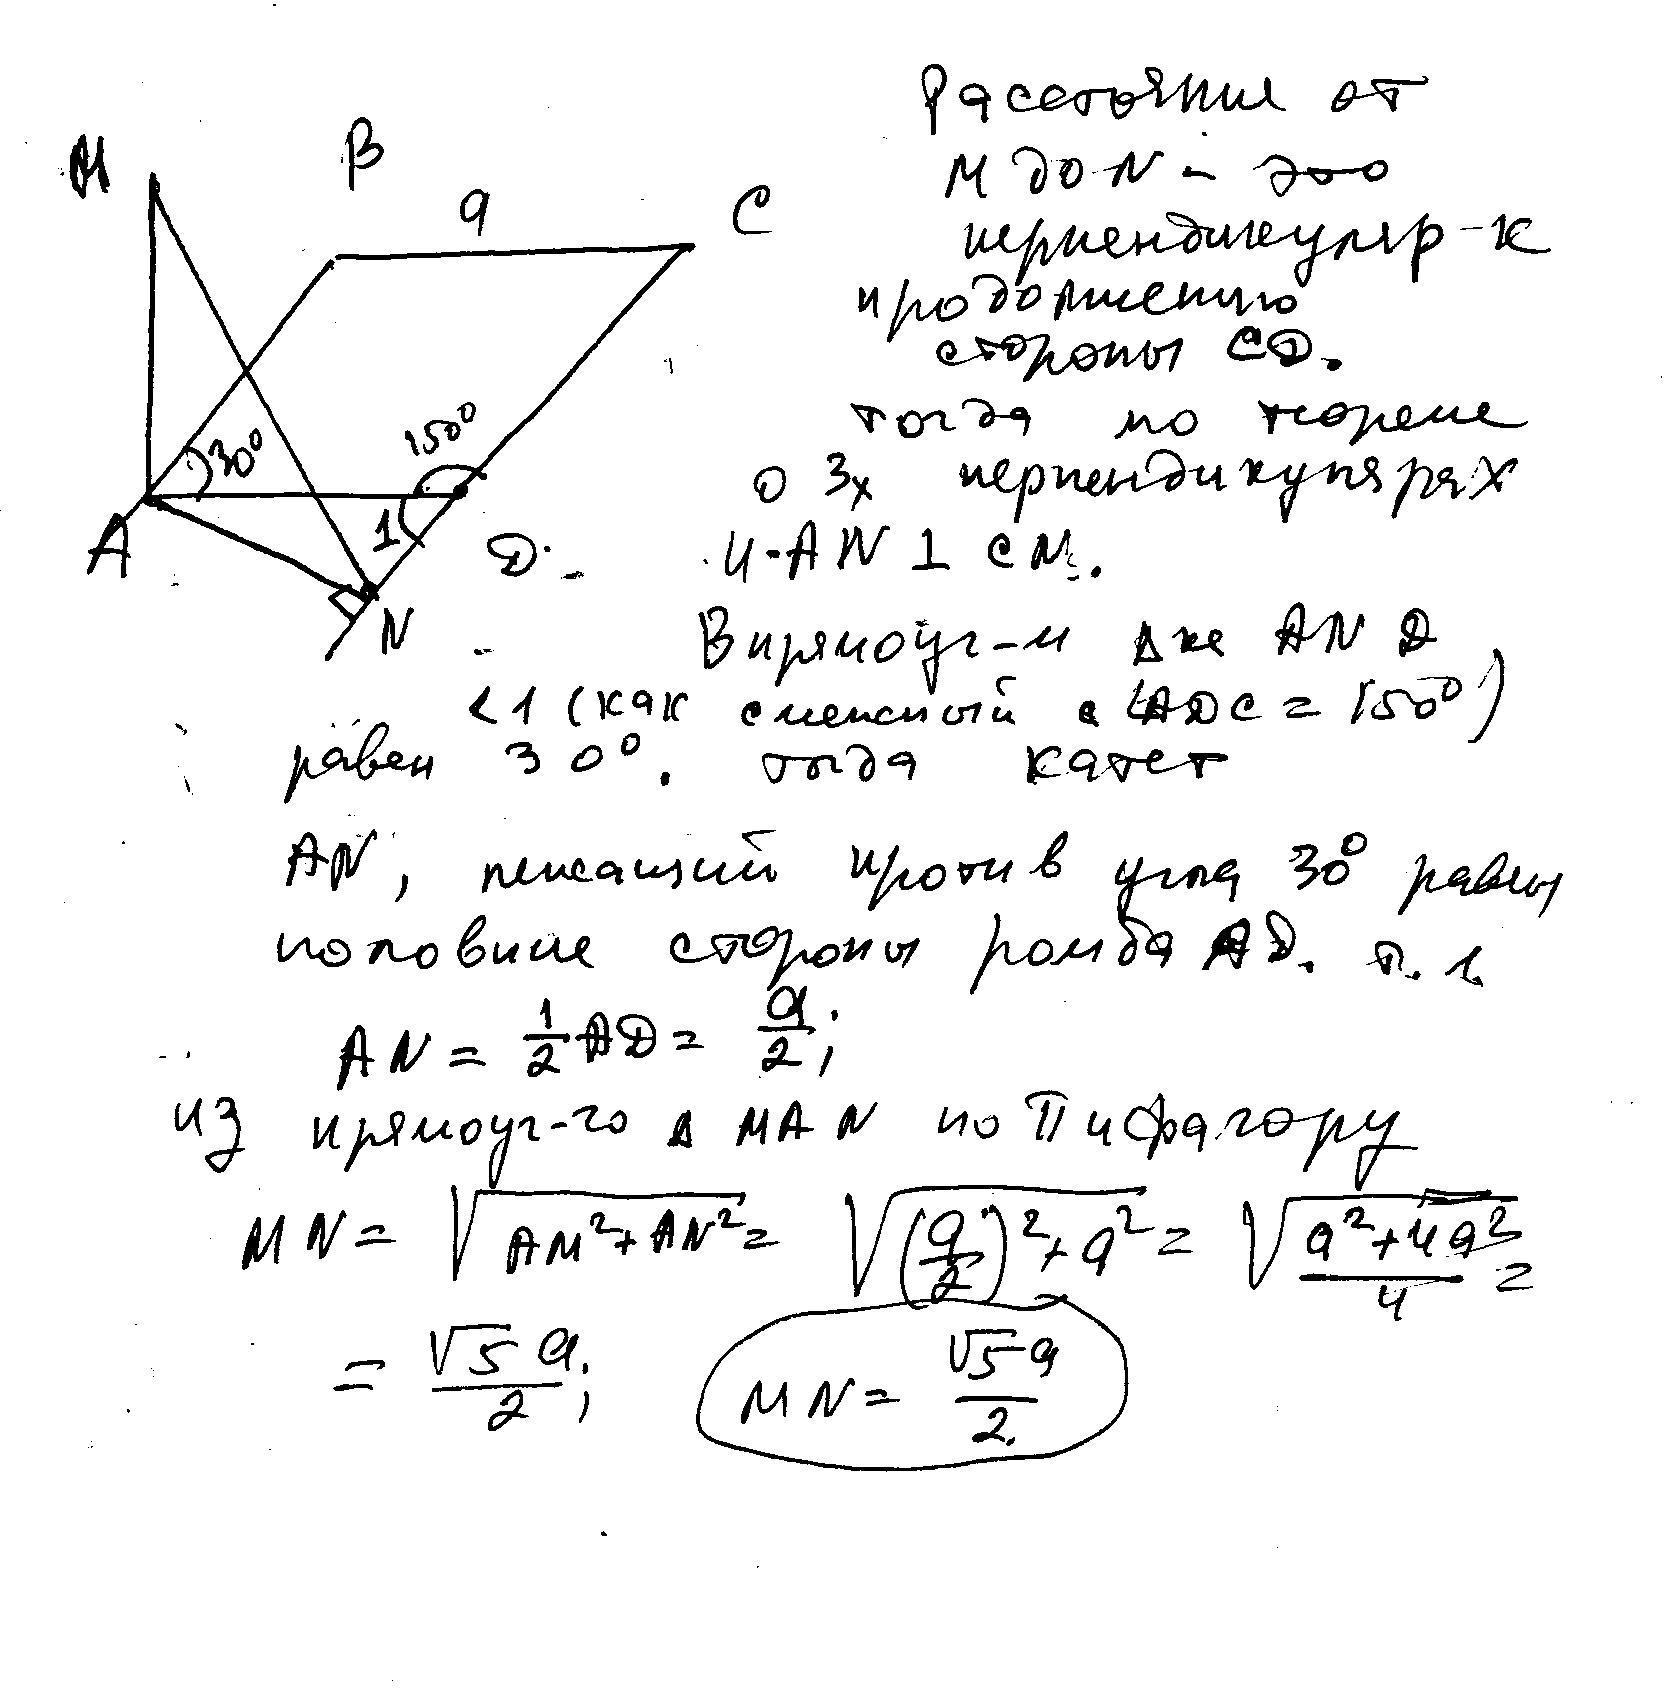 M
B
a
C
30°
150°
A
1
D
N
Расстояние от
M до N - это
перпендикуляр к
продолжению
стороны CD.
тогда по теореме
о 3х перпендикулярах
и AN ⊥ CN.
В прямоуг-м Δке AND
<1 (как смежный с <ADC = 150°)
равен 30°. тогда катет
AN, лежащий против угла 30° равен
половине стороны ромба AD. т. е.
AN = 1/2 AD = a/2;
из прямоуг-го Δ MAN по Пифагору
MN = √(AM² + AN²) = √((a/2)² + a²) = √((a² + 4a²)/4) =
= √5 a/2; MN = √5 a/2.